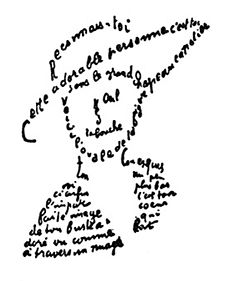 Reconnais-toi
Cette adorable personne c'est toi
Sous le grand chapeau canotier
Œil
Nez
la bouche
Voici l'ovale de ta figure
Ton
cou exquis
voi
ci enfin
l'impar
faite image
de ton buste a
doré vu comme
à travers un nuage
un peu
plus bas
c'est ton
coeur
qui
bat